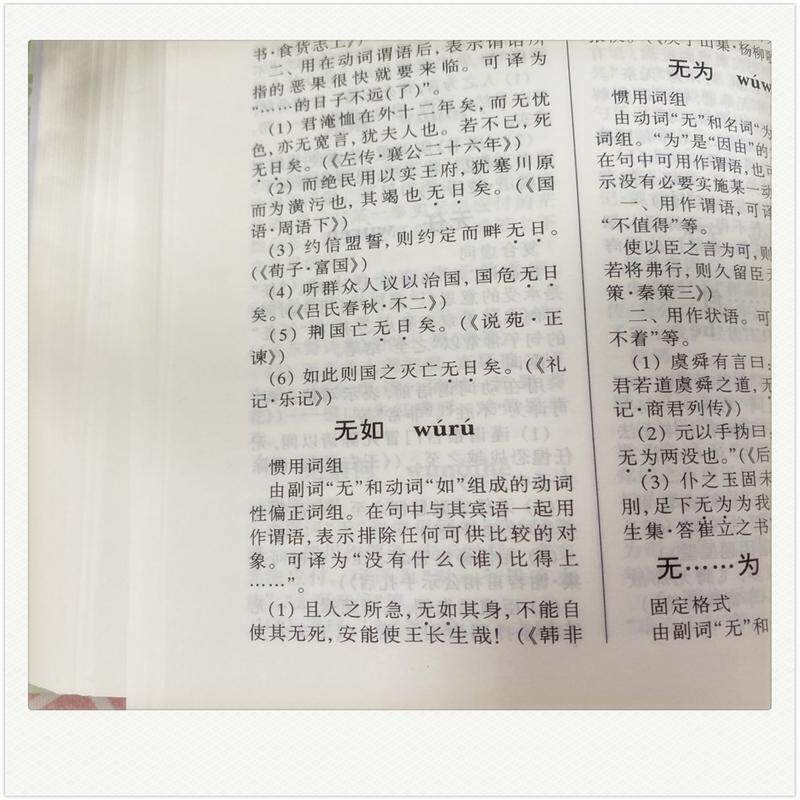 书·食货志上》)
二、用在动词谓语后，表示谓语所
指的恶果很快就要来临。可译为
“……的日子不远(了)”。
(1) 君淹恤在外十二年矣，而无忧
色，亦无宽言，犹夫人也。若不已，死
无日矣。(《左传·襄公二十六年》)
(2) 而绝民用以实王府，犹塞川原
而为潢污也，其竭也无日矣。(《国
语·周语下》)
(3) 约信盟誓，则约定而畔无日。
(《荀子·富国》)
(4) 听群众人议以治国，国危无日
矣。(《吕氏春秋·不二》)
(5) 荆国亡无日矣。(《说苑·正
谏》)
(6) 如此则国之灭亡无日矣。(《礼
记·乐记》)
无如 wúrú
惯用词组
由副词“无”和动词“如”组成的动词
性偏正词组。在句中与其宾语一起用
作谓语，表示排除任何可供比较的对
象。可译为“没有什么(谁)比得上
……”。
(1) 且人之所急，无如其身，不能自
使其无死，安能使王长生哉！(《韩非
山集·杨柳
无为 wúw
惯用词组
由动词“无”和名词“为
词组。“为”是“因由”的
在句中可用作谓语，也可
示没有必要实施某一动
一、用作谓语，可译
“不值得”等。
使以臣之言为可，则
若将弗行，则久留臣
策·秦策三》)
二、用作状语。可
不着”等。
(1) 虞舜有言曰
君若道虞舜之道，无
记·商君列传》)
(2) 元以手㧑曰
无为两没也。”(《后
(3) 仆之玉固未
刖，足下无为为我
生集·答崔立之书
无……为
固定格式
由副词“无”和